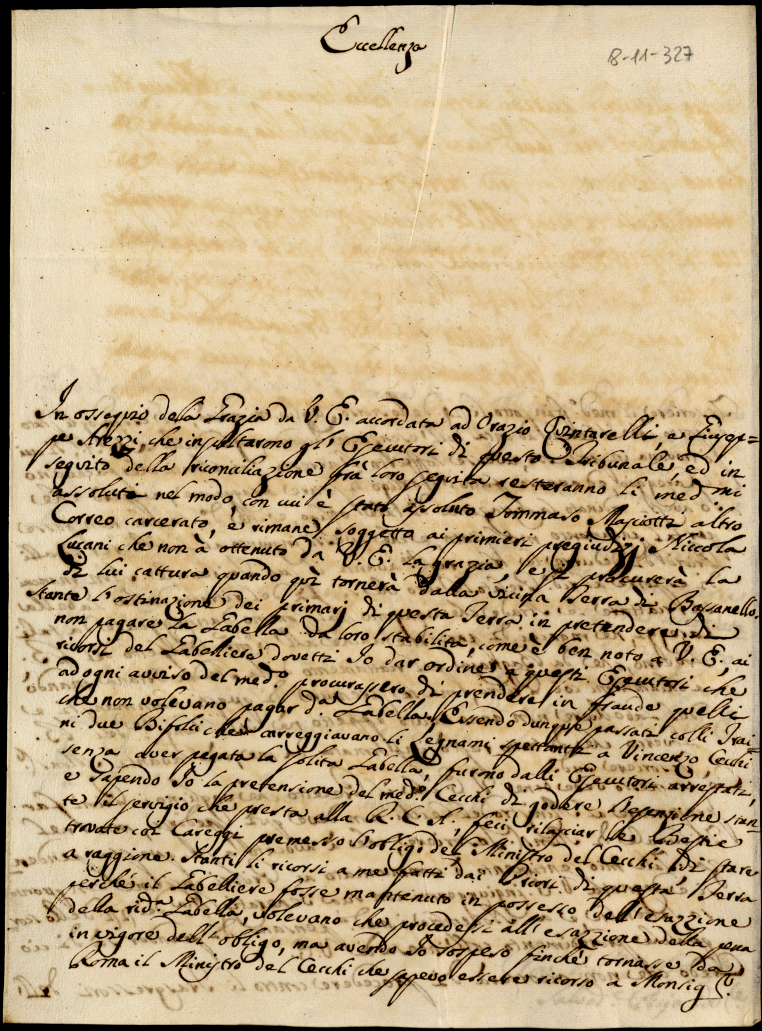 Eccellenza
8-11-327
In ossequio della Grazia da V. E. accordata ad Orazio Quintarelli, e Giusep=
pe Strezzi, che insultarono gl' Esecutori di questo Tribunale, ed in
seguito della riconciliazione frà loro seguita resteranno li medmi
assoluti nel modo, con cui è stato assoluto Tommaso Masciotti altro
Correo carcerato, e rimane soggetto ai primieri pregiudizj Niccola
Lucani che non à ottenuto da V. E. la grazia, e si procurerà la
di lui cattura quando quì tornerà dalla vicina Terra di Bassanello.
Stante l'ostinazione dei primarj di questa Terra in pretendere di
non pagare la Gabella da loro stabilita, come è ben noto a V. E., ai
ricorsi del Gabelliere dovetti Io dar ordine a questi Esecutori che
ad ogni avviso del medo procurassero di prendere in fraude quelli
che non volevano pagar da Gabella. Essendo dunque passati colli Trai=
ni due Bifolci che carreggiavano li Legnami spettanti a Vincenzo Cecchi
senza aver pagata la solita Gabella, furono dalli Esecutori arrestati,
e sapendo Io la pretensione del med. Cecchi di godere l'esenzione stan=
te il servigio che presta alla R. C. A., feci rilasciar le Bestie
trovate coi Careggi premesso l'obligo del Ministro del Cecchi di stare
a raggione. Stanti li ricorsi a me fatti dai Priori di questa Terra
perché il Gabelliere fosse mantenuto in possesso dell'esazzione
della rida Gabella, volevano che procedessi all'esazzione della pena
in vigore dell'obligo, ma avendo Io sospeso finché tornasse da
Roma il Ministro del Cecchi che sapevo essere ricorso a Monsig